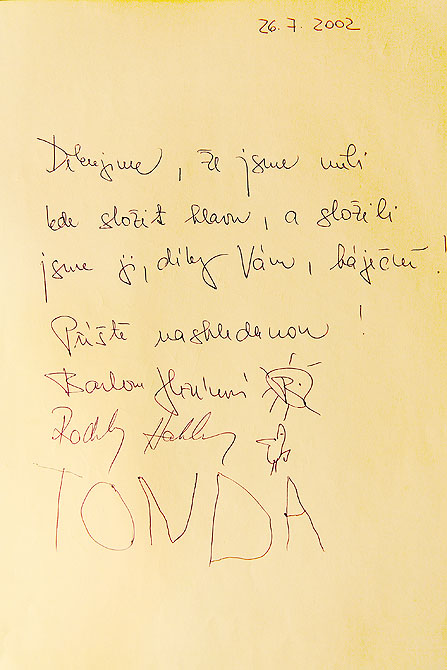 26.7.2002
Děkujeme, že jsme měli
kde složit hlavu, a složili
jsme ji, díky Vám, báječně!
Příště nashledanou!
TONDA